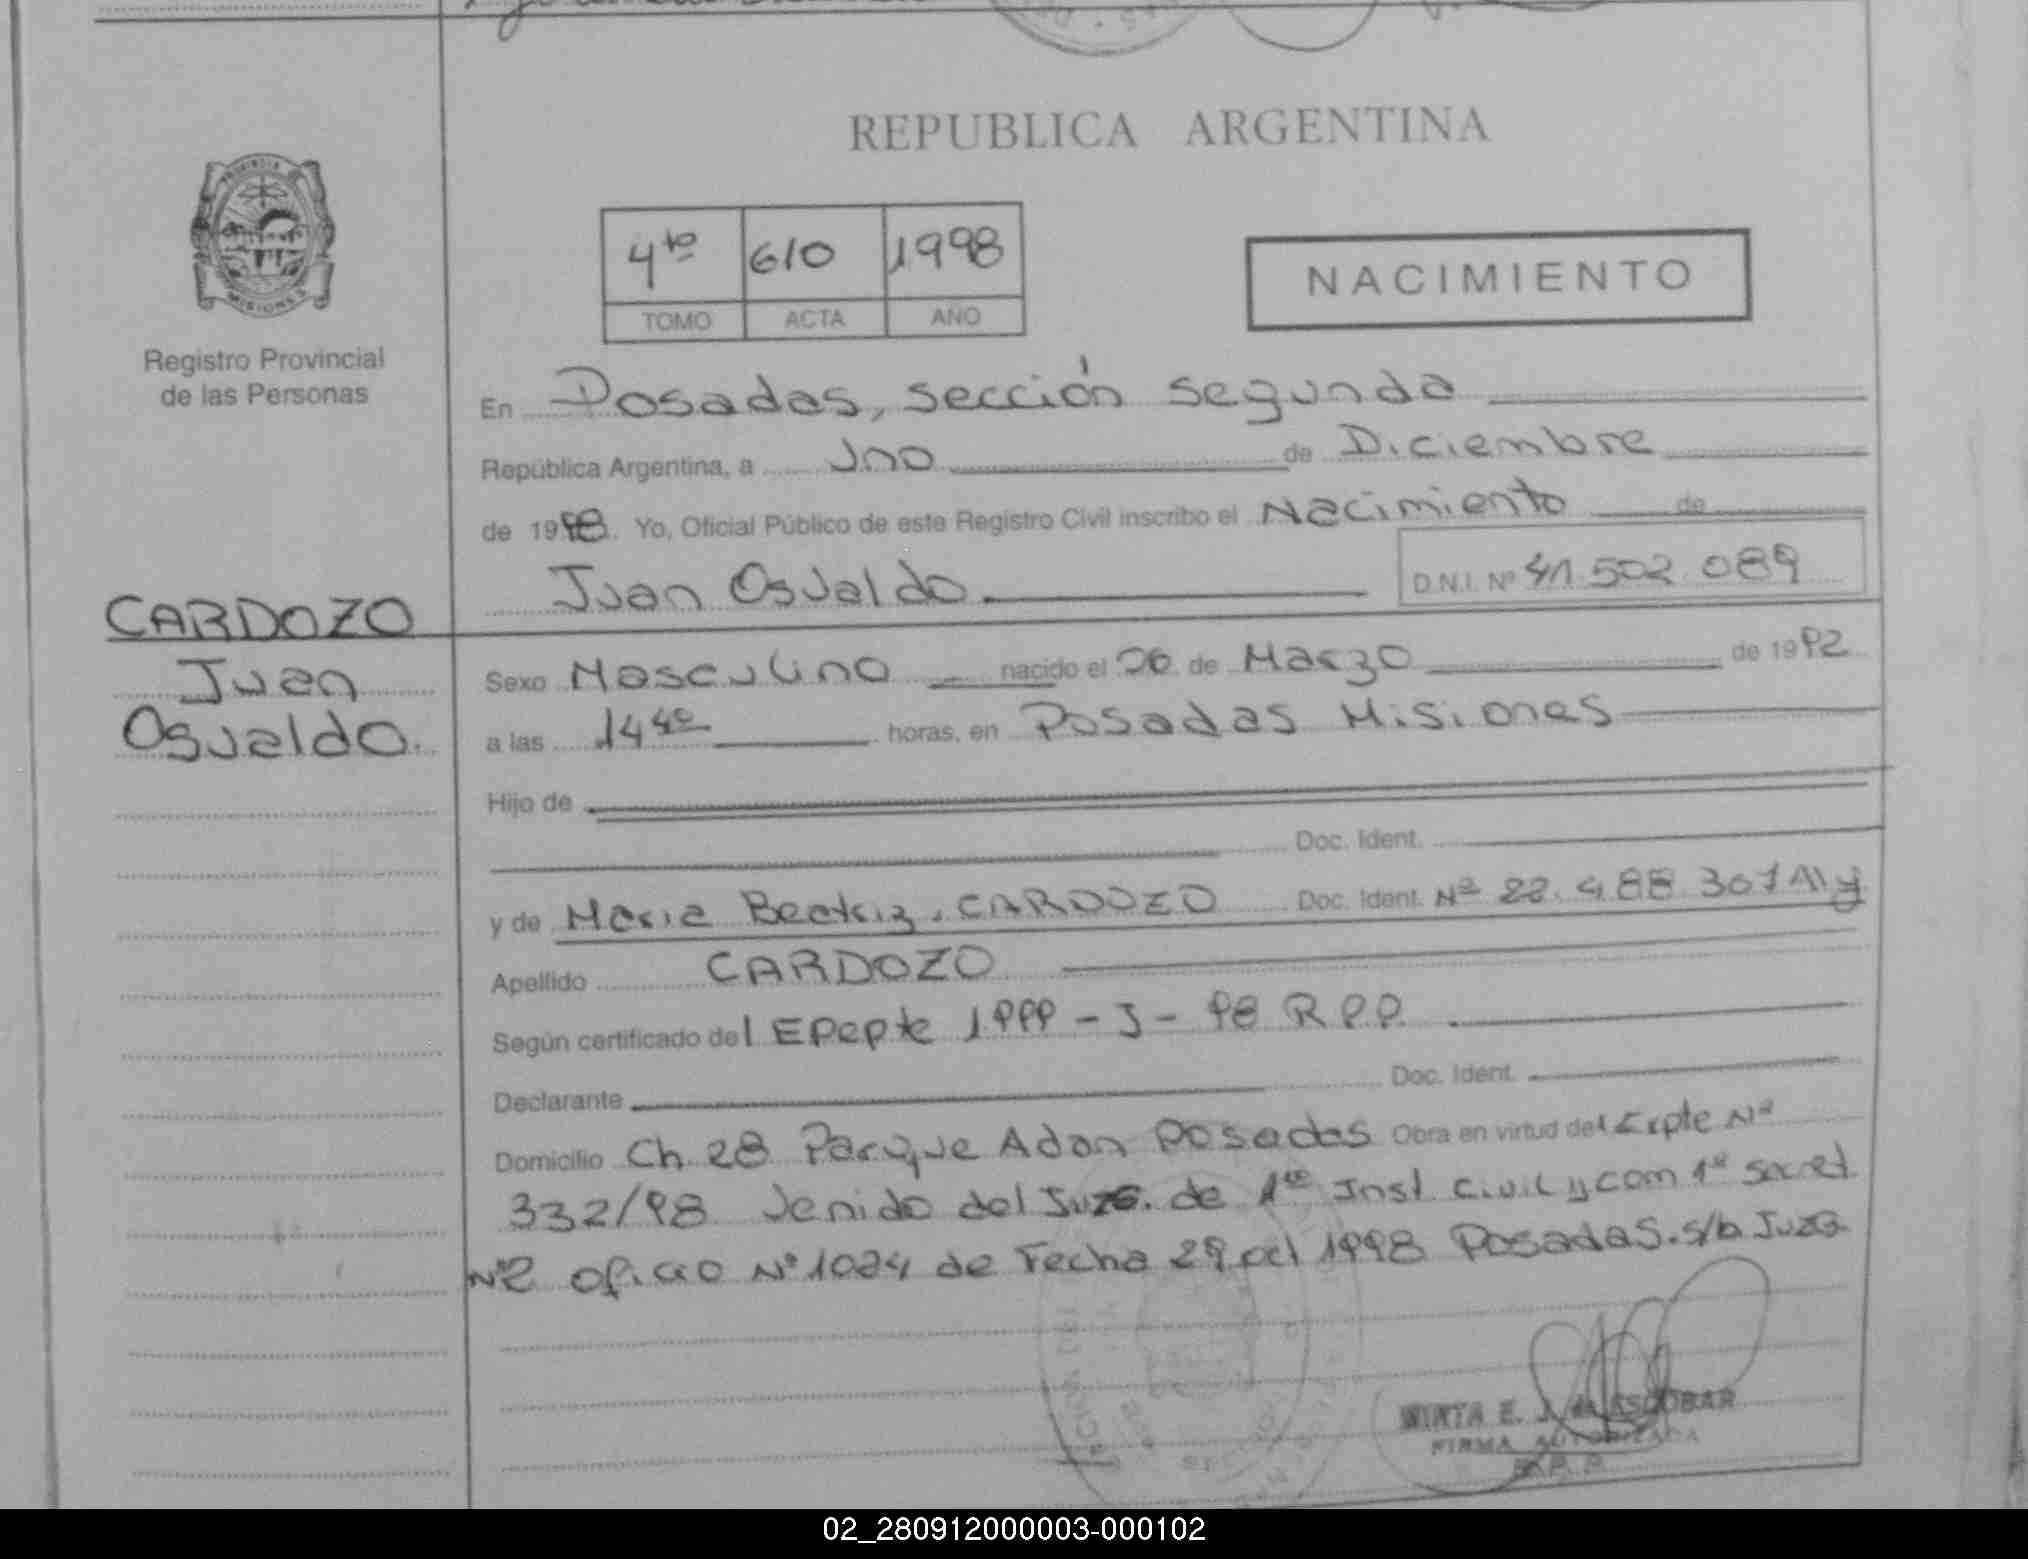 REPUBLICA ARGENTINA
PROVINCIA
MISIONES
Registro Provincial
de las Personas
4to 610 1998
TOMO ACTA AÑO
NACIMIENTO
En Posadas, sección segunda
República Argentina, a uno de Diciembre
de 1998. Yo, Oficial Público de este Registro Civil inscribo el Nacimiento de
Juan Osvaldo D.N.I. Nº 41.502.089
CARDOZO
Juan
Osvaldo.
Sexo Masculino nacido el 26 de Marzo de 1992
a las 14 40 horas, en Posadas Misiones
Hijo de
Doc. Ident.
y de Maria Beatriz, CARDOZO Doc. Ident. Nº 22.488.307
Apellido CARDOZO
Según certificado del 1999-J-98 R.P.P.
Declarante Doc. Ident.
Domicilio Ch. 28 Parque Adan Posadas Obra en virtud del Expte Nº
332/98 venido del Juzg. de 1ra Inst civil y com 1ª secret
Nº2 oficio Nº 1024 de Fecha 29 oct 1998 Posadas. s/b Juzg.
MIRTA E. J. de ESCOBAR
FIRMA AUTORIZADA
R.P.P.
02_280912000003-000102